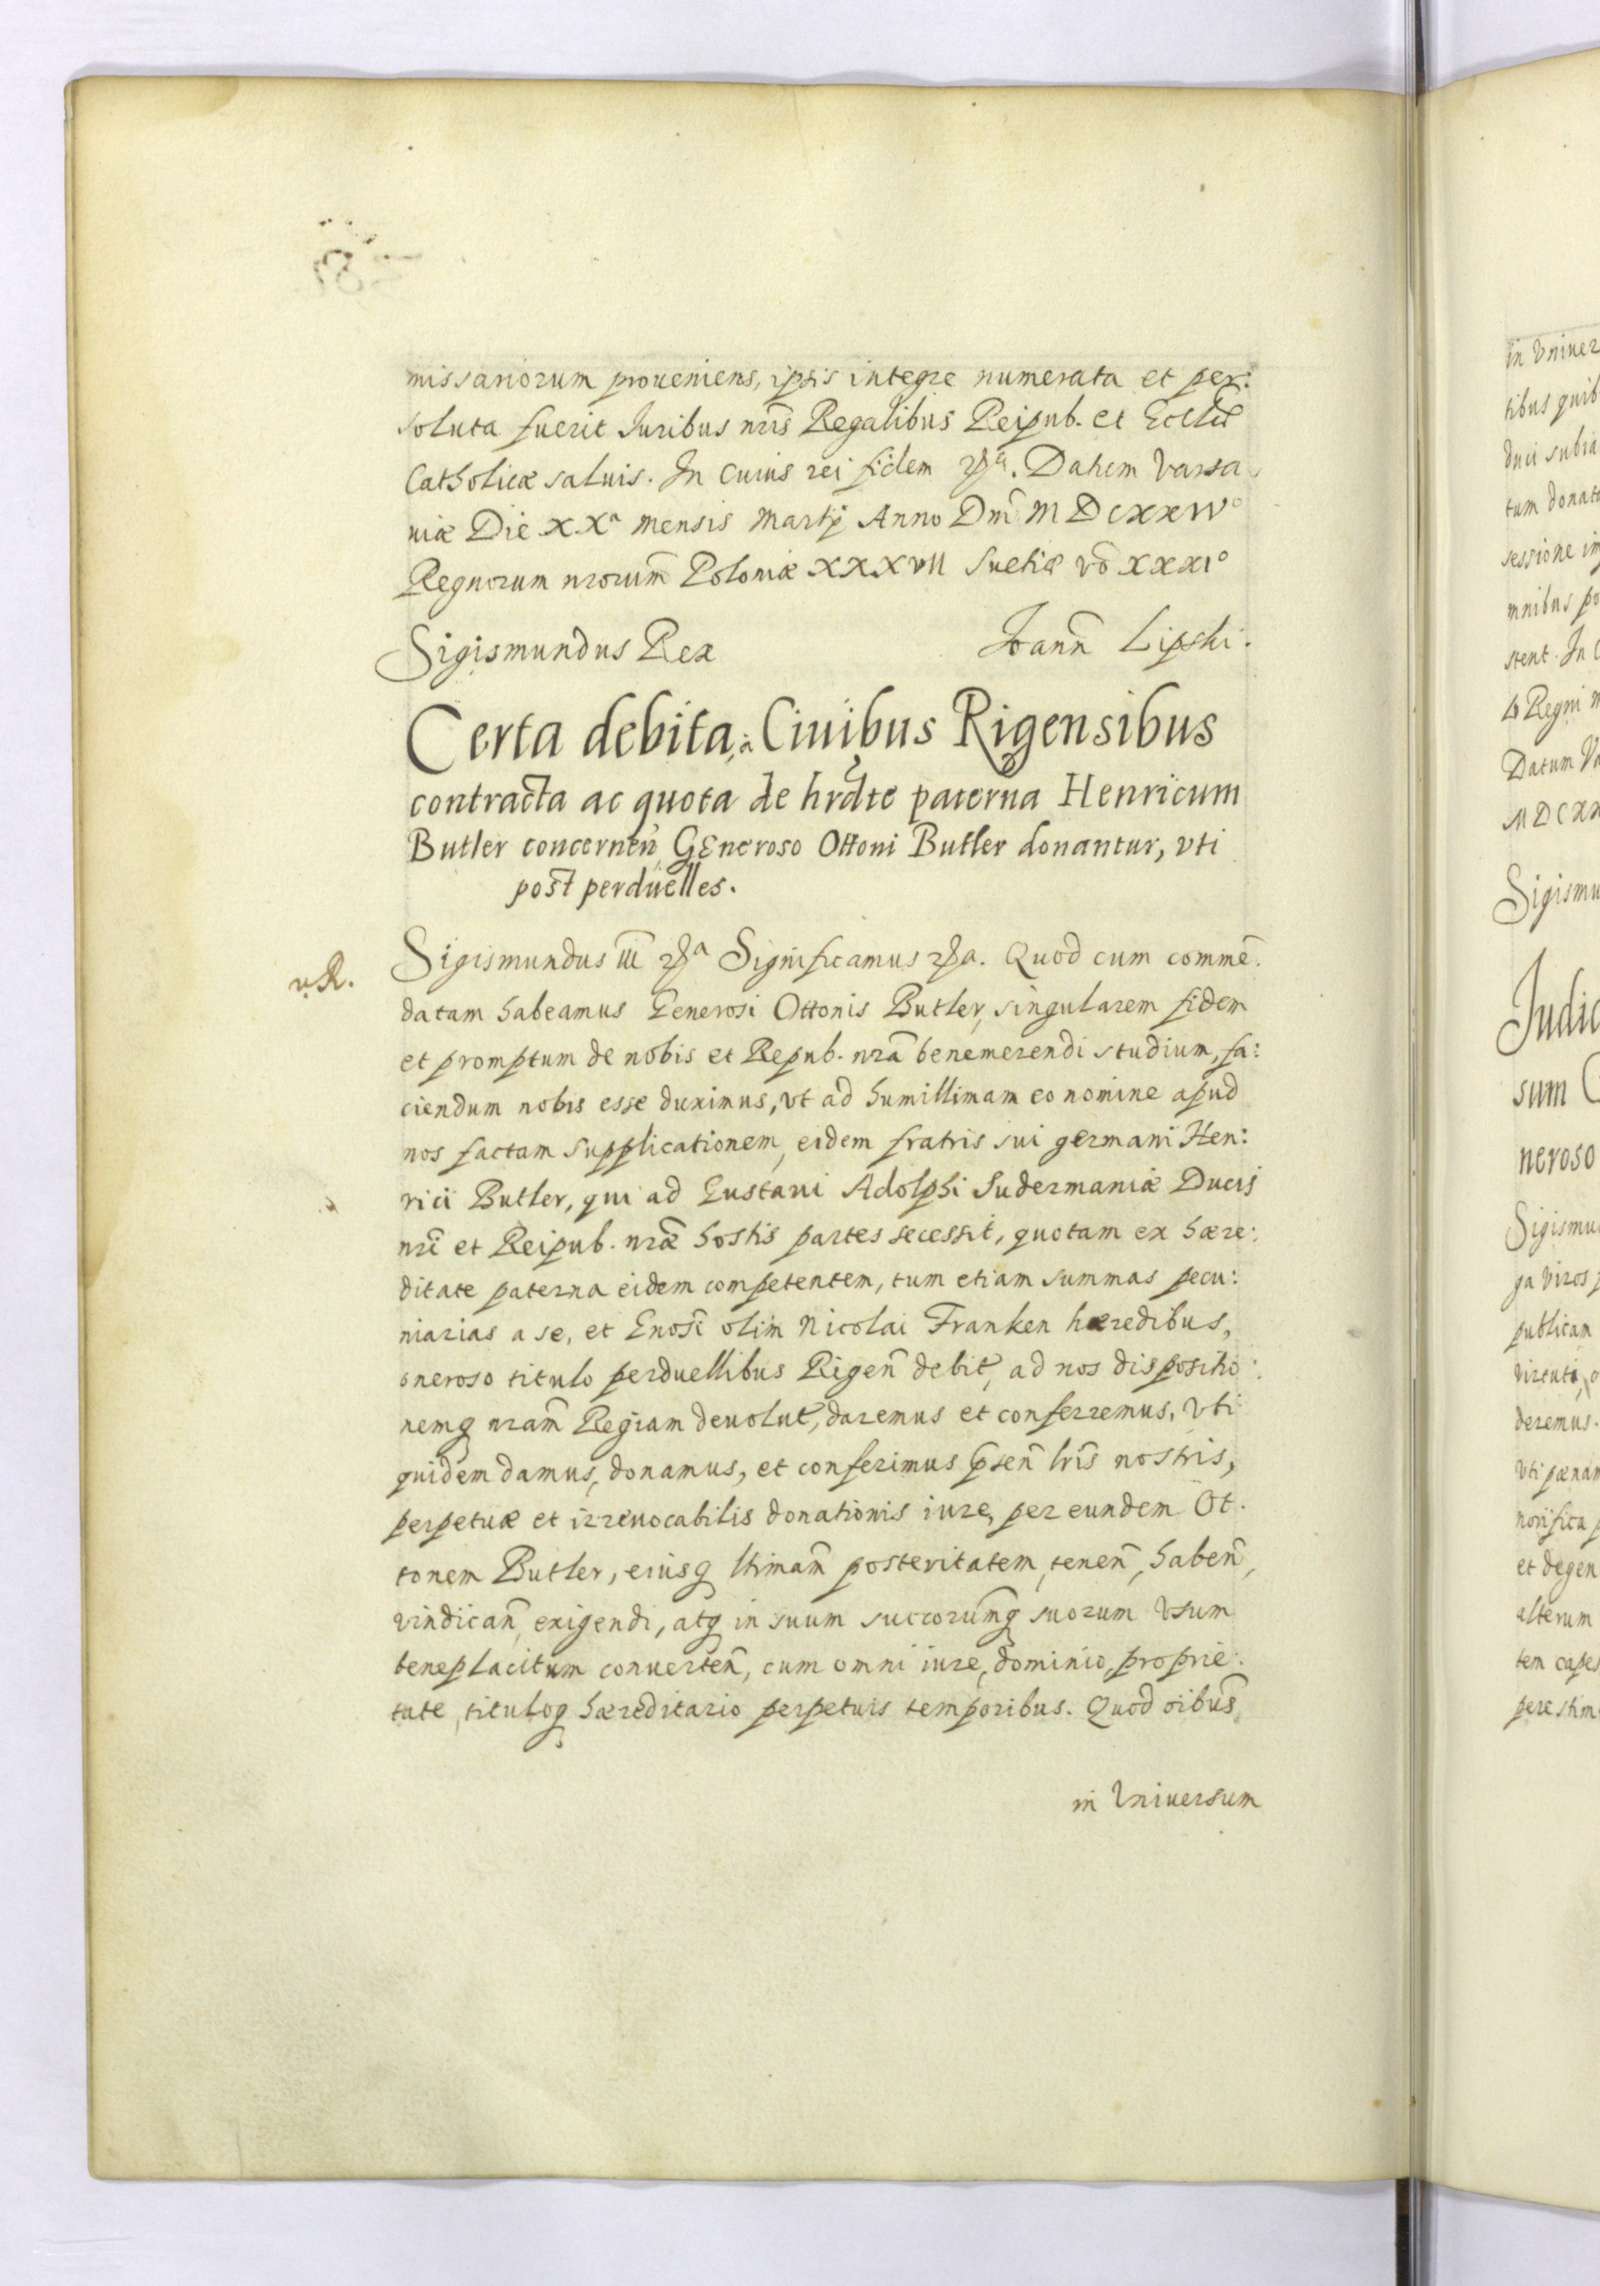 missariorum proueniens, ipsis integre numerata et per:
soluta fuerit Iuribus nris̃ Regalibus Reipub. et Eccliæ
Catholicæ saluis. In cuius rei fidem &a. Datum Varsa
uiæ Die XXa mensis Martij Anno Dnĩ M D C XX IVo
Regnorum nrorum̃ Poloniæ XXXVII Suetiæ vo᷉ XXXIo
Sigismundus Rex
Ioann᷉ Lipski.
Certa debita, a Ciuibus Rigensibus
contracta ac quota de hrdte paterna Henricum
Butler concernen᷉ GEneroso Ottoni Butler donantur, vti
post perduelles.
Sigismundus III &a Significamus &a. Quod cum commẽ
datam habeamus Generosi Ottonis Butler, singularem fidem
et promptum de nobis et Repub. nrã benemerendi studium, fa:
ciendum nobis esse duximus, vt ad humillimam eo nomine apud
nos factam supplicationem, eidem fratris sui germani Hen:
rici Butler, qui ad Gustaui Adolphi Sudermaniæ Ducis
nrĩ et Reipub. nræ̃ hostis partes secessit, quotam ex hære:
ditate paterna eidem competentem, tum etiam summas pecu:
niarias a se, et Gnosĩ olim Nicolai Franken hæredibus,
oneroso titulo perduellibus Rigen᷉ debit, ad nos dispositio:
nemq nram̃ Regiam deuolut, daremus et conferremus, Vti
quidem damus, donamus, et conferimus p̃sen᷉ lrĩs nostris,
perpetuæ et irreuocabilis donationis iure, per eundem Ot.
tonem Butler, eiusq ltimam̃ posteritatem, tenen᷉, haben᷉,
vindican᷉, exigendi, atq in suum succorum̃q suorum Vsum
beneplacitum conuerten᷉, cum omni iure, dominio, proprie:
tate, tituloq hæreditario perpetuis temporibus. Quod oibus̃
in Vniuersum